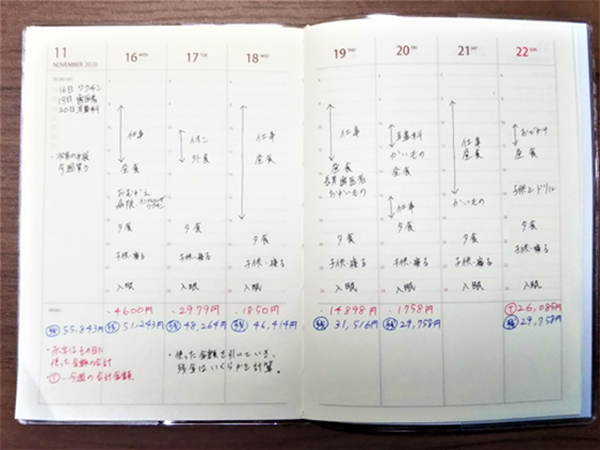 11
NOVEMBER 2020
16日 ワクチン
19日 歯医者
20日 耳鼻科
・来年の手帳
今週買う
16 MON
仕事
昼食
おむかえ
病院
ワクチン
夕食
子供、寝る
入眠
17 TUE
イオン
外食
夕食
子供、寝る
入眠
18 WED
仕事
昼食
夕食
子供、寝る
入眠
19 THU
仕事
昼食
長男歯医者
おかいもの
夕食
子供、寝る
入眠
20 FRI
耳鼻科
かいもの
昼食
仕事
夕食
子供、寝る
入眠
21 SAT
仕事
昼食
かいもの
夕食
子供、寝る
入眠
22 SUN
おでかけ
昼食
子供とドリル
夕食
子供、寝る
入眠
MEMO
・4600円
・2979円
・1850円
・14898円
・1758円
T 26,085円
残 55,843円
残 51,243円
残 48,264円
残 46,414円
残 31,516円
残 29,758円
残 29,758円
・赤字はその日に
使った金額の合計
T…今週の合計金額
・使った金額を引いていき、
残金はいくらかを計算。